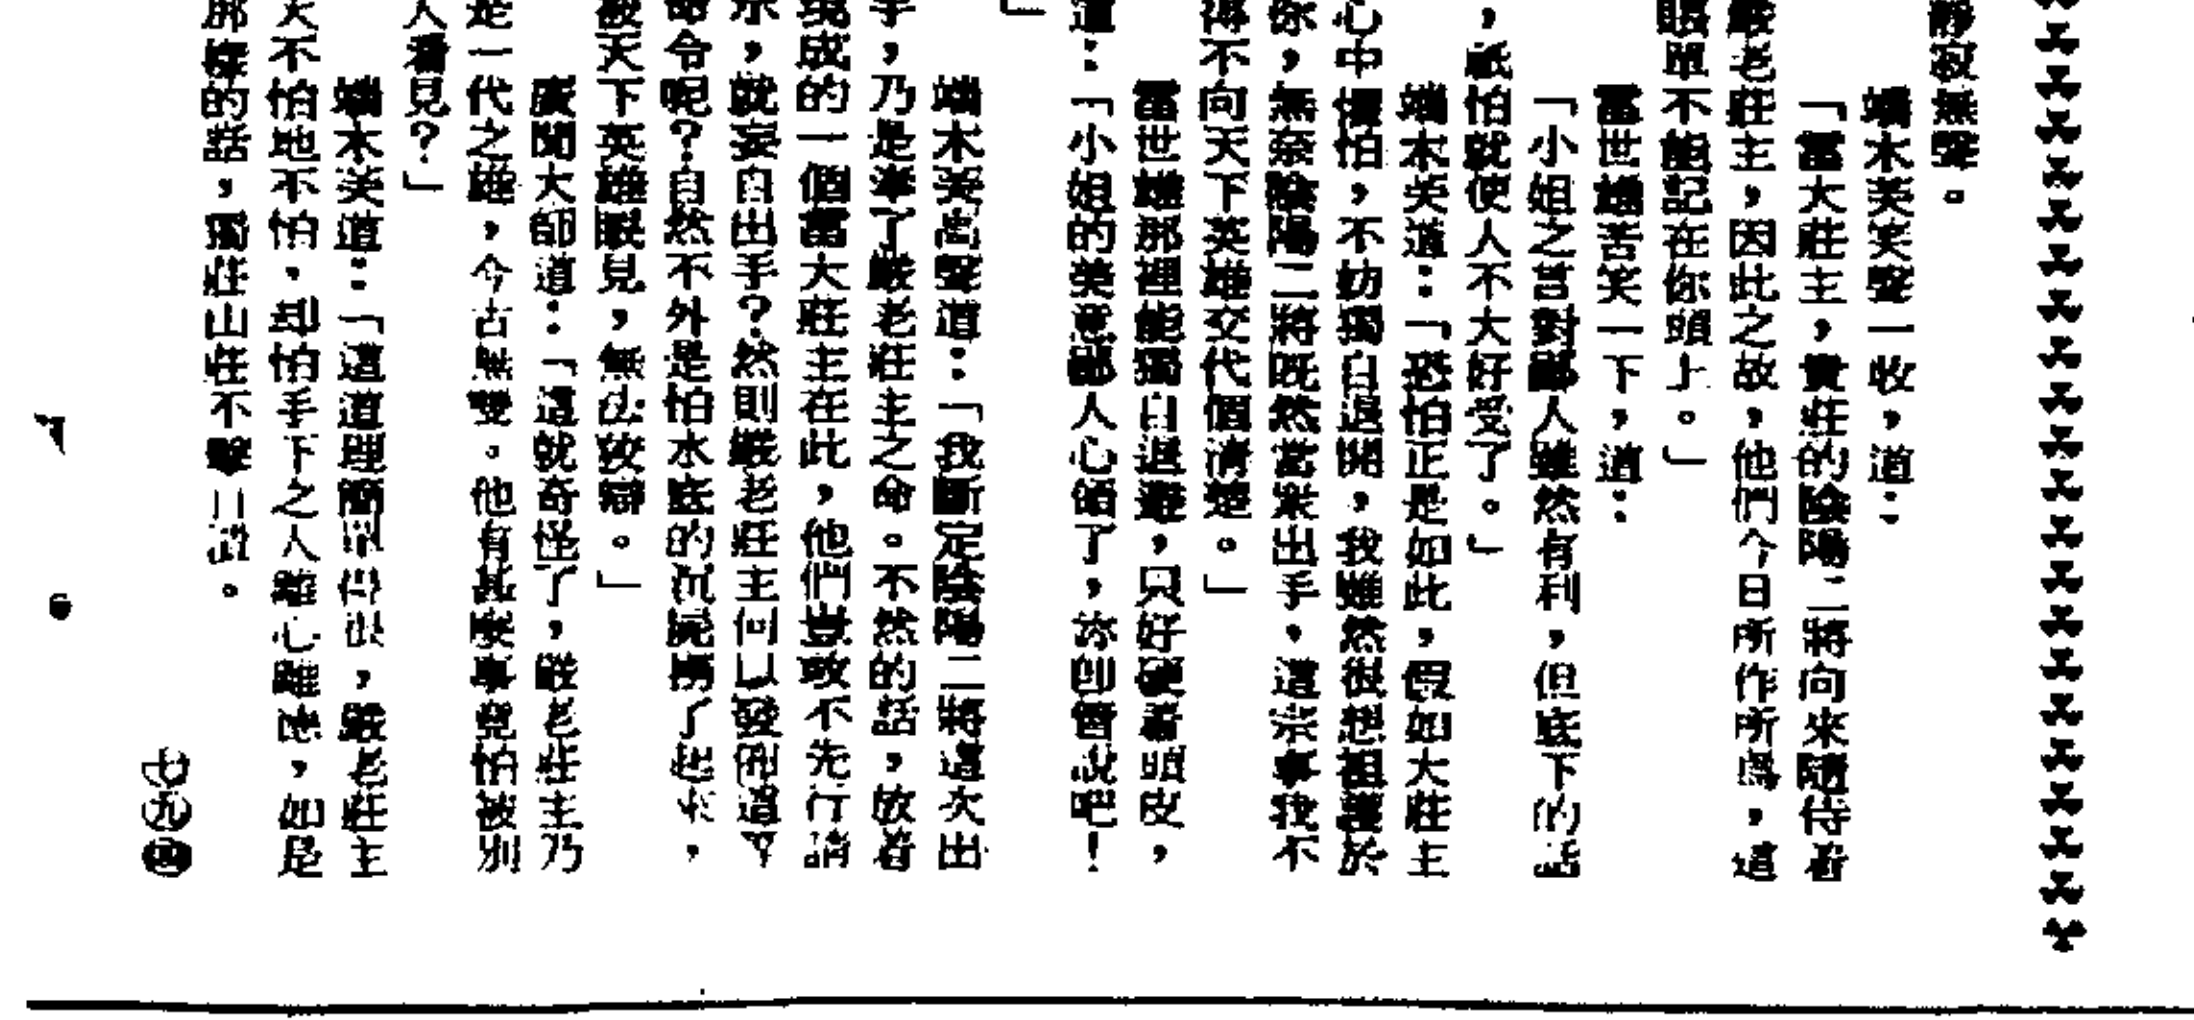 靜寂無聲。
端木芙笑聲一收，道：
「雷大莊主，貴莊的陰陽二將向來隨侍着
嚴老莊主，因此之故，他們今日所作所為，這
賬單不能記在你頭上。」
雷世雄苦笑一下，道：
「小姐之言對鄙人雖然有利，但底下的話
，祇怕就使人不大好受了。」
端木芙道：「恐怕正是如此，假如大莊主
心中懼怕，不妨獨自退開，我雖然很想袒護於
你，無奈陰陽二將既然當眾出手，這宗事我不
得不向天下英雄交代個清楚。」
雷世雄那裡能獨自退避，只好硬着頭皮，
道：「小姐的美意鄙人心領了，妳則管說吧！
」
端木芙高聲道：「我斷定陰陽二將這次出
手，乃是奉了嚴老莊主之命。不然的話，放着
現成的一個雷大莊主在此，他們豈敢不先行請
示，就妄自出手？然則嚴老莊主何以發佈這
命令呢？自然不外是怕水底的沉屍撈了起來，
被天下英雄眼見，無法狡辯。」
廣聞大師道：「這就奇怪了，嚴老莊主乃
是一代之雄，今古無雙。他有甚麼事竟怕被別
人看見？」
端木芙道：「這道理簡單得很，嚴老莊主
天不怕地不怕，却怕手下之人離心離德，如是
那樣的話，獨莊山莊不擊自潰。
七九四